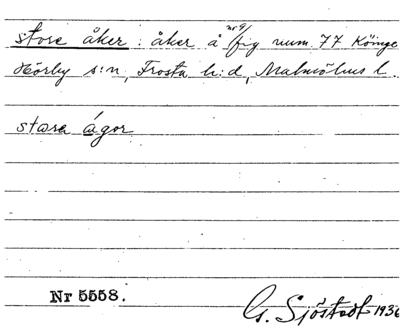 store åker : åker å nr 9/fig num. 77 Köinge
Hörby s:n, Frosta h:d, Malmöhus l.
stora ågor
Nr 5558.
G. Sjöstedt 1936